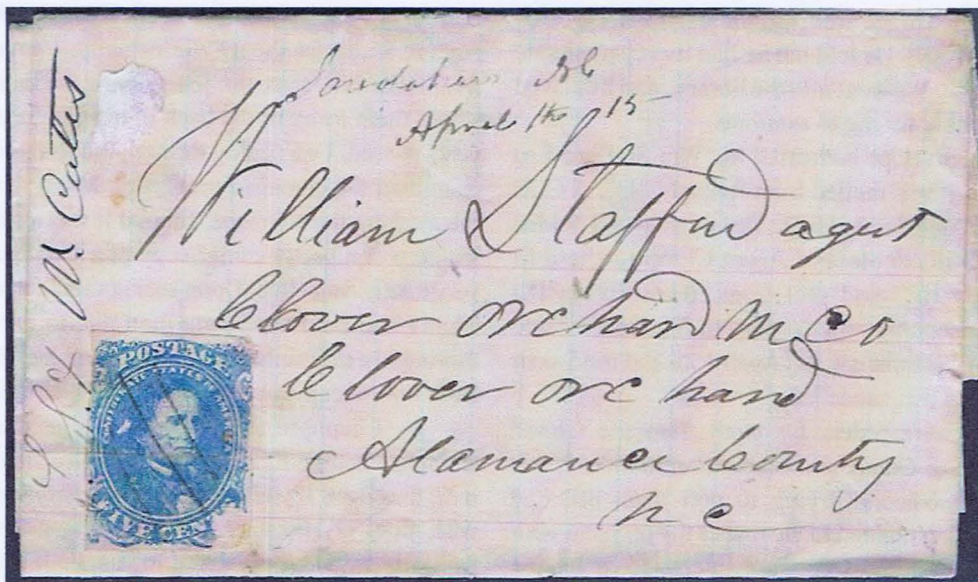 NC
April the 15
William Stafford agent
Clover orchard M Co
Clover orchard
Alamance County
N C
M. Cates
POSTAGE
CONFEDERATE STATES OF AMERICA
FIVE CENTS